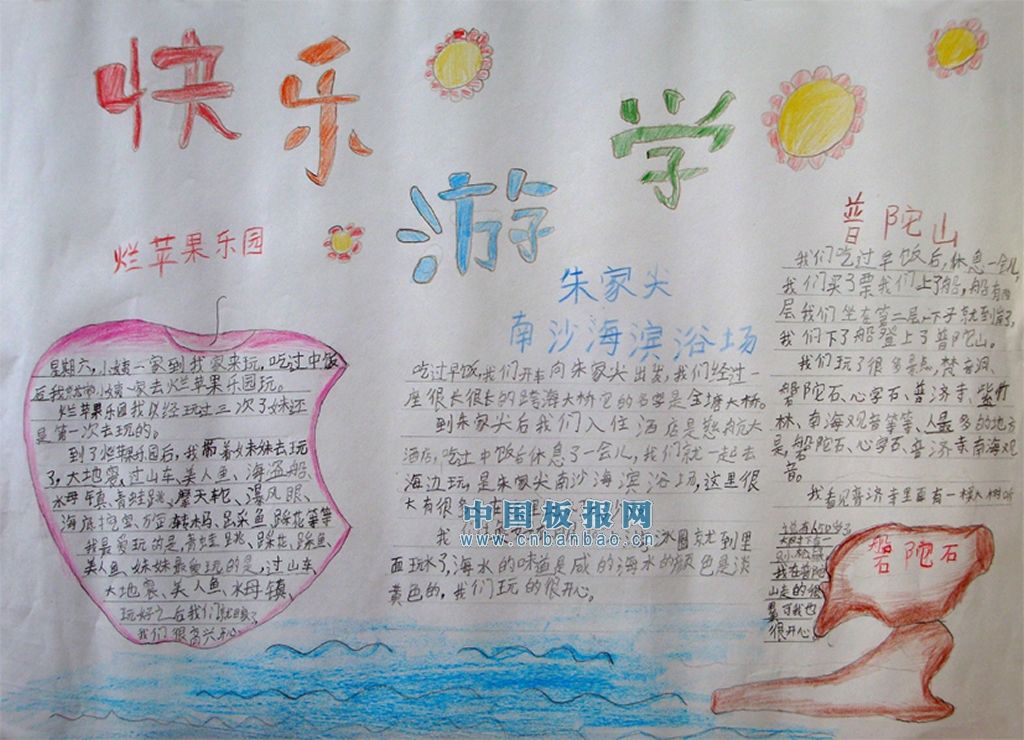 快乐
游学
烂苹果乐园
星期六,小姨一家到我家来玩,吃过中饭
后我们和小姨一家去烂苹果乐园玩。
烂苹果乐园我以经玩过三次了妹还
是第一次去玩的。
到了烂苹果乐园后,我带着妹妹去玩
了,大地震,过山车、美人鱼、海盗船、
水母镇、青蛙跳、摩天轮、暴风眼、
转木马、踩鱼、踩花等等
我最爱玩的是,青蛙跳、踩花、踩鱼、
美人鱼、妹妹最爱玩的是,过山车、
大地震、美人鱼、水母镇、
玩好之后我们就回家了
我们很高兴开心
朱家尖
南沙海滨浴场
吃过早饭,我们开车向朱家尖出发,我们经过一
座很长很长的跨海大桥它的名字是金塘大桥。
到朱家尖后我们入住酒店是悠航大
酒店,吃过中饭后休息了一会儿,我们就一起去
海边玩,是朱家尖南沙海滨浴场,这里很
大有很多
我 泳圈就到里
面玩水了,海水的味道是咸的海水的颜色是淡
黄色的,我们玩的很开心。
中国板报网
www.cnbanbao.cn
普陀山
我们吃过早饭后,休息一会儿,
我们买了票我们上了船,船有四
层我们坐在第二层一下子就到岸了,
我们下了船登上了普陀山。
我们玩了很多景点,梵音洞、
磐陀石、心字石、普济寺、紫竹
林、南海观音等等、人最多的地方
是,磐陀石、心字石、普济寺南海观
音。
我看见普济寺里面有一棵大树听
我在普陀
山走的很
累可我也
很开心。
磐陀石